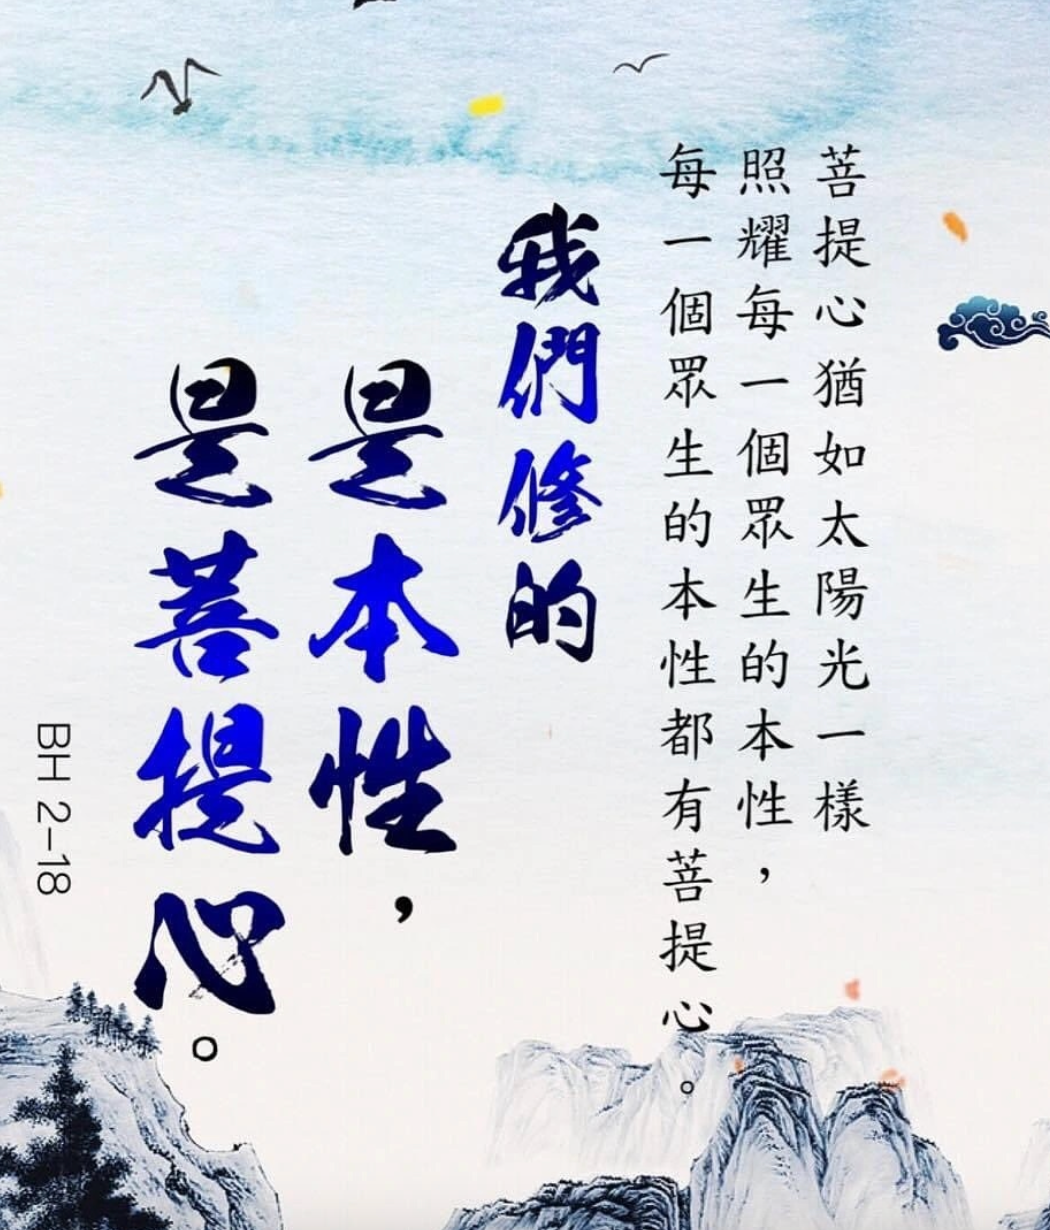 菩提心猶如太陽光一樣
照耀每一個眾生的本性，
每一個眾生的本性都有菩提心。
我們修的
是本性，
是菩提心。
BH 2-18